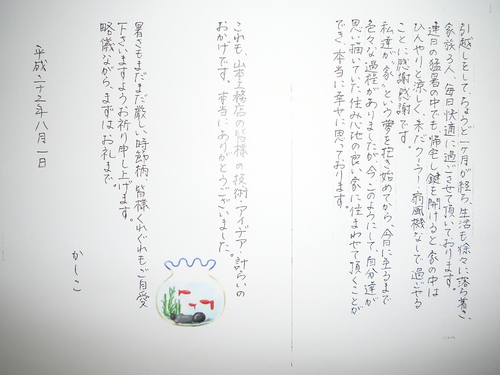 引越しをして、ちょうど一ヶ月が経ち、生活も徐々に落ち着き、
家族3人、毎日快適に過ごさせて頂いております。
連日の猛暑の中でも帰宅し鍵を開けると家の中は
ひんやりと涼しく、未だクーラー、扇風機なしで過ごせる
ことに感謝感謝です。
私達が“家”という夢を抱き始めてから、今日に至るまで
色々な過程がありましたが、今このようにして、自分達が
思い描いていた住み心地の良い家に住まわせて頂くことが
でき、本当に幸せに思っております。
これも、山本工務店の皆様の技術、アイデア、計らいの
おかげです。本当にありがとうございました。
暑さもまだまだ厳しい時節柄、皆様くれぐれもご自愛
下さいますようお祈り申し上げます。
略儀ながら、まずはお礼まで。
かしこ
平成二十二年八月一日